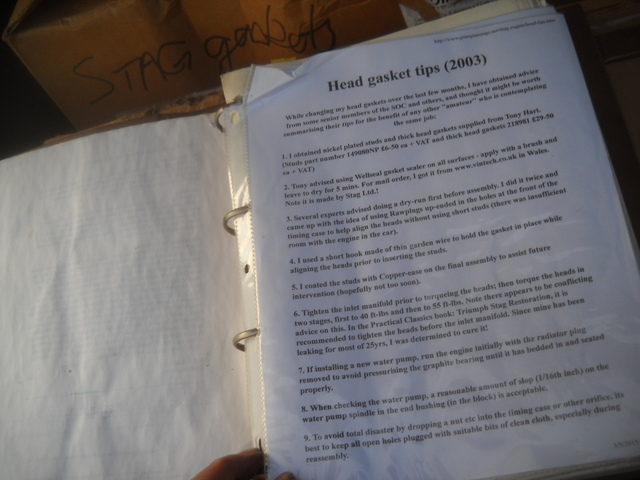 STAG gaskets
Head gasket tips (2003)
While changing my head gaskets over the last few months, I have obtained advice
from some senior members of the SOC and others, and thought it might be worth
summarising their tips for the benefit of any other "amateur" who is contemplating
the same job:
1. I obtained nickel plated studs and thick head gaskets supplied from Tony Hart.
(Studs part number 149080NP £6-50 ea + VAT and thick head gaskets 218981 £29-50
ea + VAT)
2. Tony advised using Wellseal gasket sealer on all surfaces - apply with a brush and
leave to dry for 5 mins. For mail order, I got it from www.vintech.co.uk in Wales.
Note it is made by Stag Ltd.!
3. Several experts advised doing a dry-run first before assembly. I did it twice and
came up with the idea of using Rawplugs up-ended in the holes at the front of the
timing case to help align the heads without using short studs (there was insufficient
room with the engine in the car).
4. I used a short hook made of thin garden wire to hold the gasket in place while
aligning the heads prior to inserting the studs.
5. I coated the studs with Copper-ease on the final assembly to assist future
intervention (hopefully not too soon).
6. Tighten the inlet manifold prior to torqueing the heads; then torque the heads in
two stages, first to 40 ft-lbs and then to 55 ft-lbs. Note there appears to be conflicting
advice on this. In the Practical Classics book: Triumph Stag Restoration, it is
recommended to tighten the heads before the inlet manifold. Since mine has been
leaking for most of 25yrs, I was determined to cure it!
7. If installing a new water pump, run the engine initially with the radiator plug
removed to avoid pressurising the graphite bearing until it has bedded in and seated
properly.
8. When checking the water pump, a reasonable amount of slop (1/16th inch) on the
water pump spindle in the end bushing (in the block) is acceptable.
9. To avoid total disaster by dropping a nut etc into the timing case or other orifice, its
best to keep all open holes plugged with suitable bits of clean cloth, especially during
reassembly.